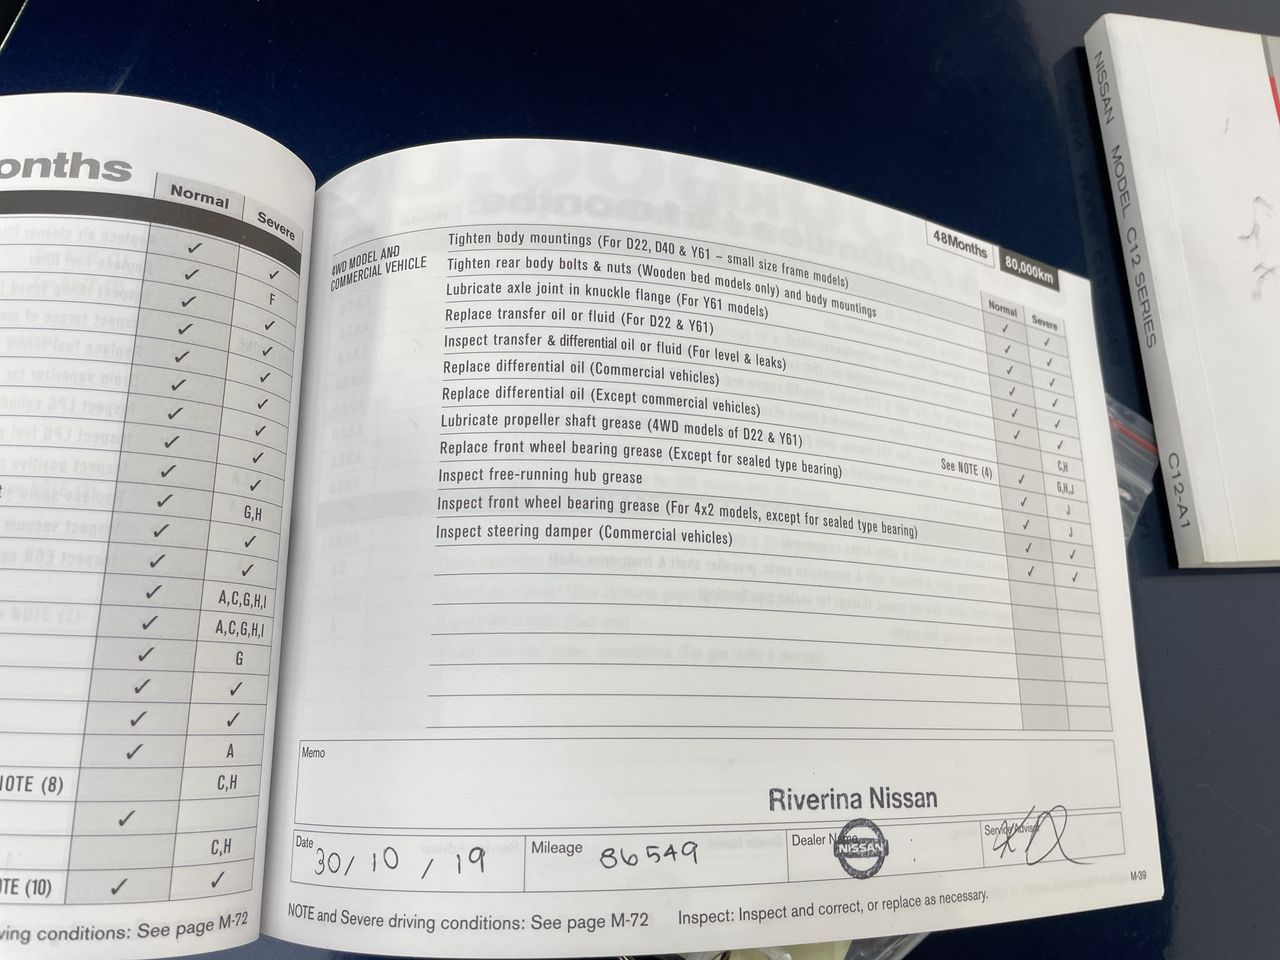 onths
Normal
Severe
✓ ✓
✓ F
✓ ✓
✓ ✓
✓ ✓
✓ ✓
✓ ✓
✓ ✓
✓ ✓
✓ G,H
✓ ✓
✓ ✓
✓ A,C,G,H,I
✓ A,C,G,H,I
✓ G
✓ ✓
✓ ✓
✓ A
NOTE (8) C,H
✓
C,H
TE (10) ✓ ✓
ving conditions: See page M-72
48Months
80,000km
Normal
Severe
4WD MODEL AND
COMMERCIAL VEHICLE
Tighten body mountings (For D22, D40 & Y61 – small size frame models) ✓ ✓
Tighten rear body bolts & nuts (Wooden bed models only) and body mountings ✓ ✓
Lubricate axle joint in knuckle flange (For Y61 models) ✓ ✓
Replace transfer oil or fluid (For D22 & Y61) ✓ ✓
Inspect transfer & differential oil or fluid (For level & leaks) ✓ ✓
Replace differential oil (Commercial vehicles) ✓ ✓
Replace differential oil (Except commercial vehicles) C,H
Lubricate propeller shaft grease (4WD models of D22 & Y61) See NOTE (4) ✓ G,H,J
Replace front wheel bearing grease (Except for sealed type bearing) ✓ J
Inspect free-running hub grease ✓ J
Inspect front wheel bearing grease (For 4x2 models, except for sealed type bearing) ✓ ✓
Inspect steering damper (Commercial vehicles) ✓ ✓
Memo
Riverina Nissan
Date 30/10/19
Mileage 86549
Dealer Name
NISSAN
Service Advisor
M-39
NOTE and Severe driving conditions: See page M-72
Inspect: Inspect and correct, or replace as necessary.
NISSAN MODEL C12 SERIES
C12-A1